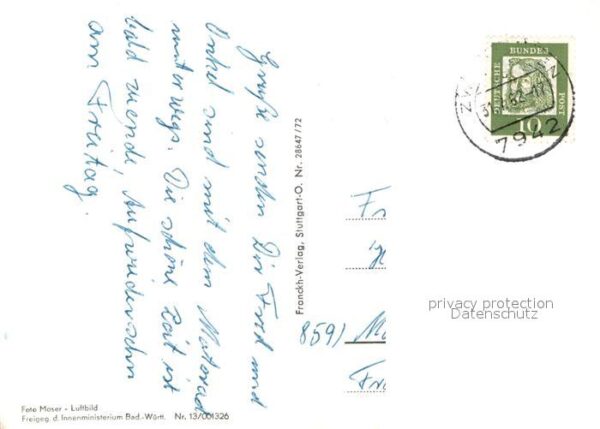 Grüße senden Dir Fred und
Onkel sind mit dem Motorrad
unterwegs. Die schöne Zeit ist
bald zuende, Aufwiedersehn
am Freitag.
Franckh-Verlag, Stuttgart-O. Nr. 28647/72
DEUTSCHE BUNDES POST
10
7942
Fr
859)
Fr
privacy protection
Datenschutz
Foto Moser - Luftbild
Freigeg. d. Innenministerium Bad.-Württ. Nr. 13/001326